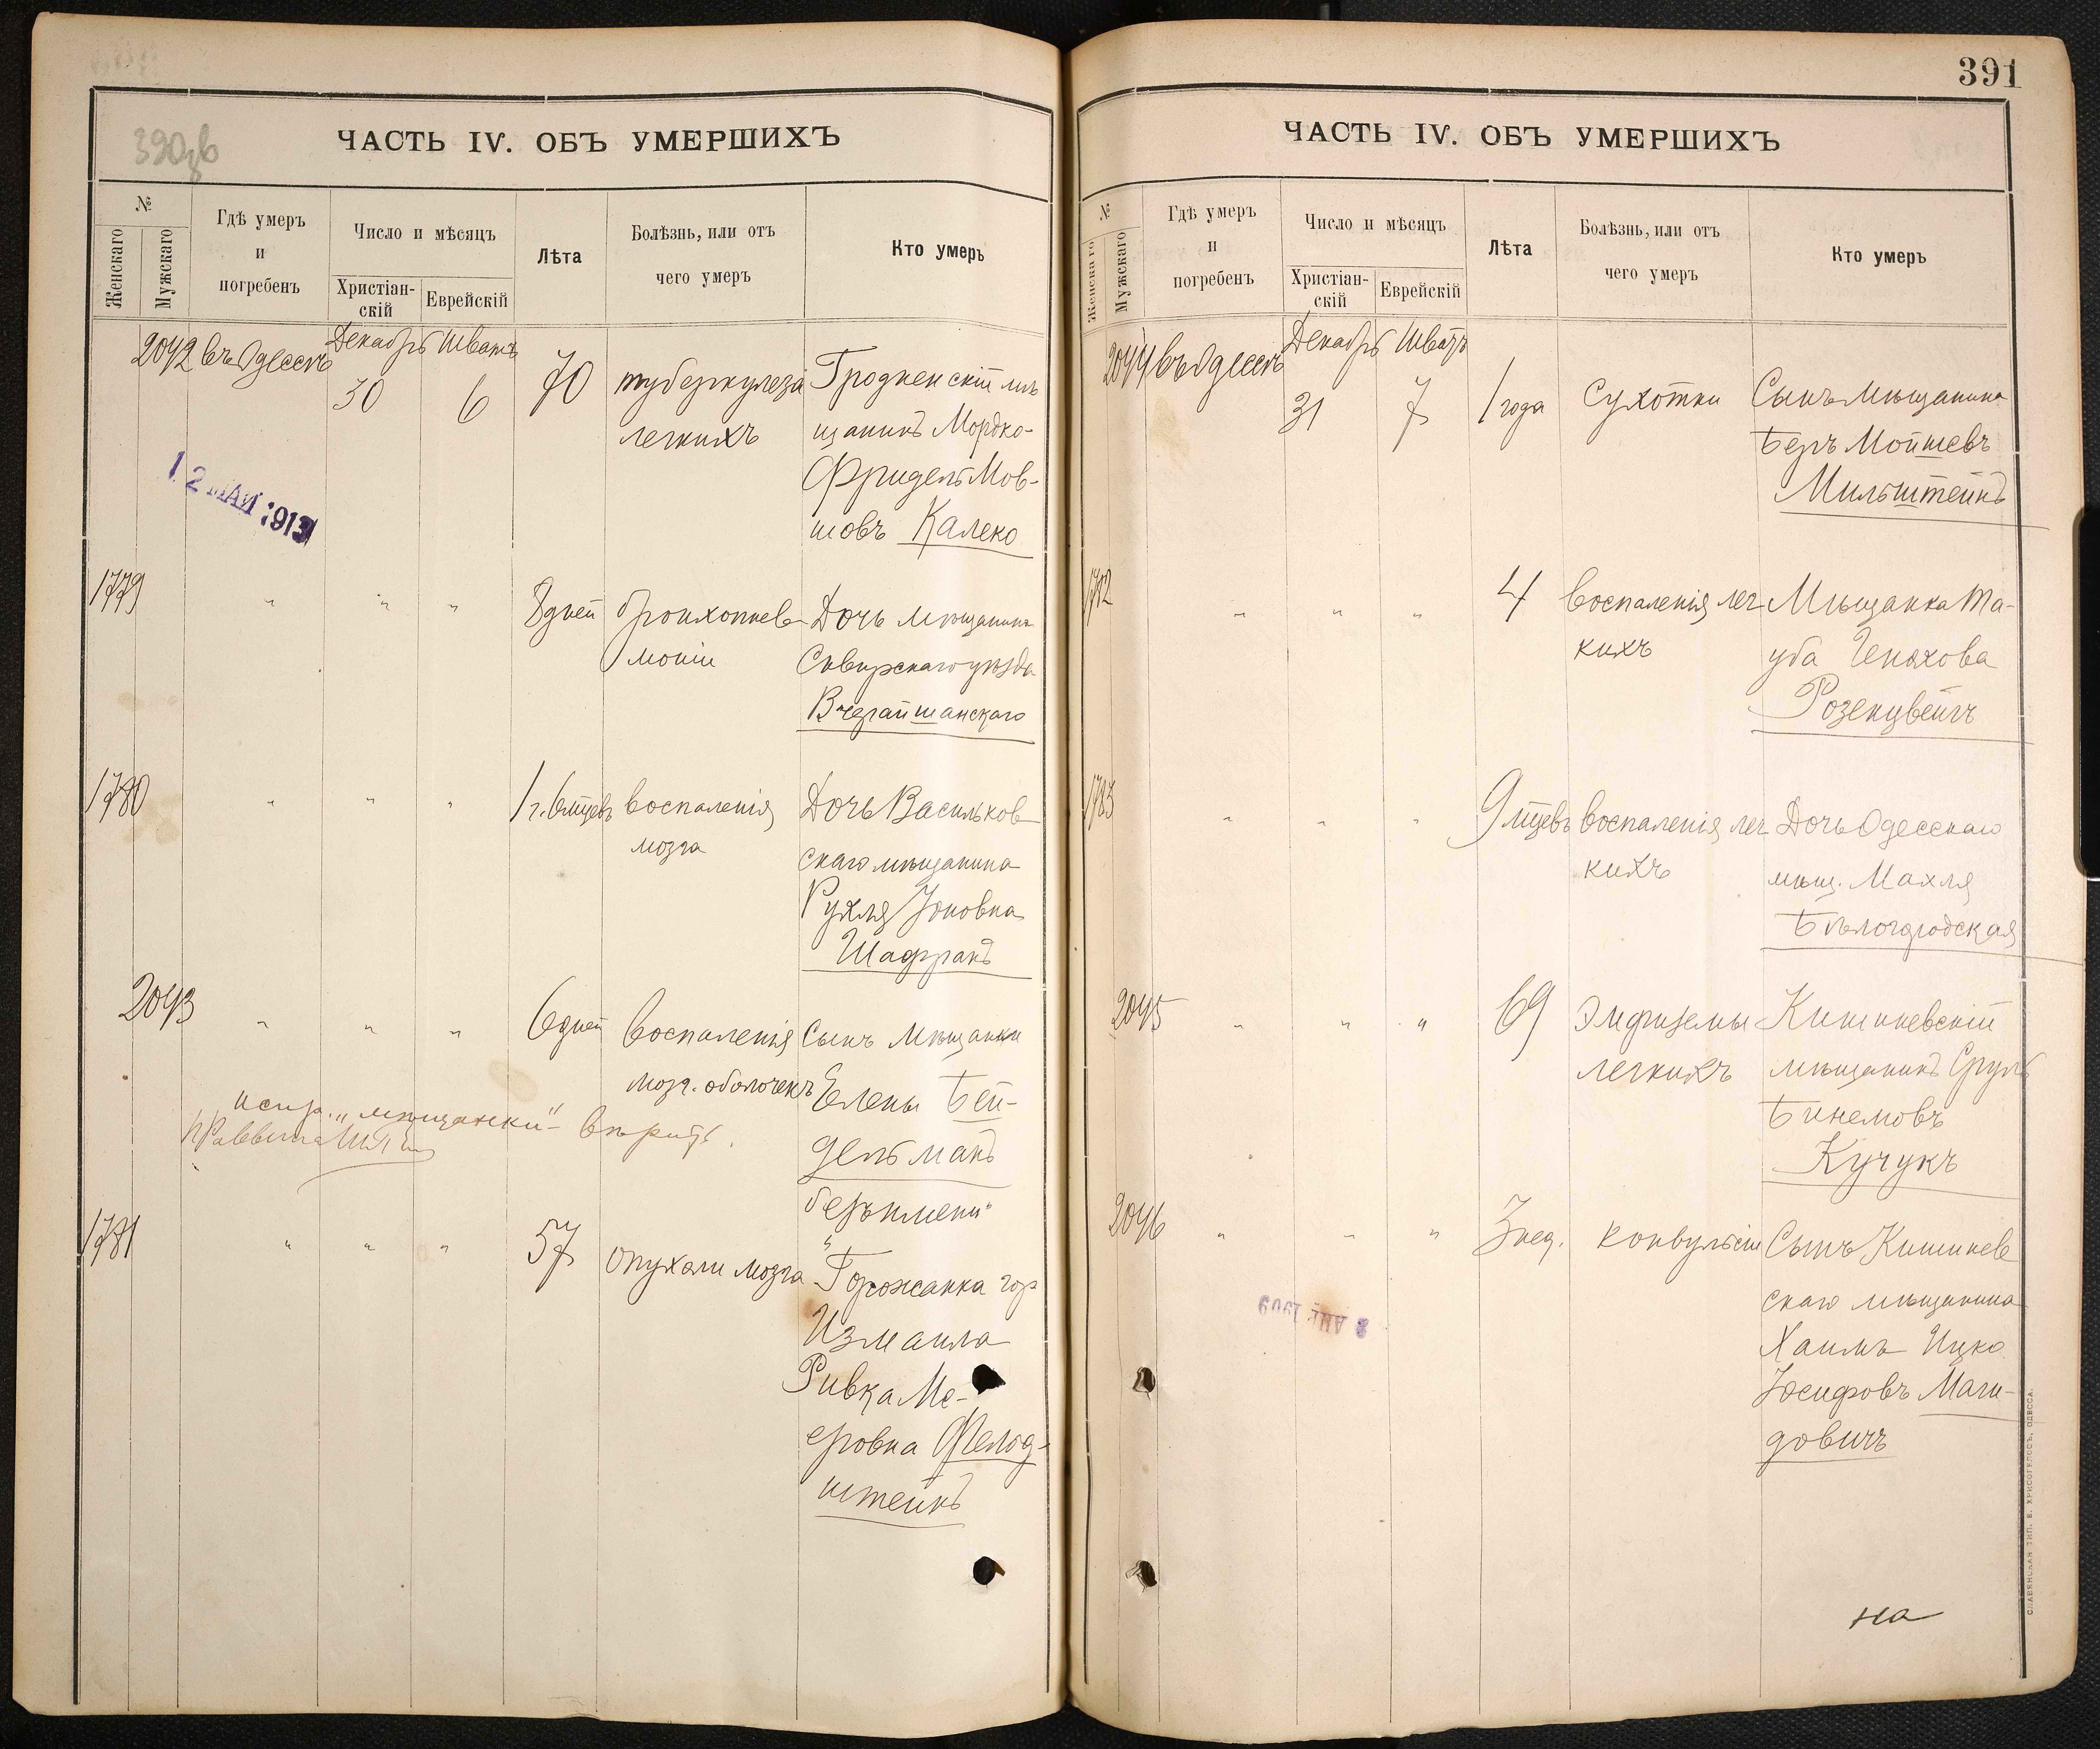 390 об
ЧАСТЬ IV. ОБЪ УМЕРШИХЪ
№
Женскаго
Мужскаго
Гдѣ умеръ
и
погребенъ
Число и мѣсяцъ
Христіан-
скій
Еврейскій
Лѣта
Болѣзнь, или отъ
чего умеръ
Кто умеръ
2042 въ Одессѣ Декабрь Шватъ
30 6 70 туберкулеза Гродненскій мѣ
легкихъ щанинъ Мордко-
Фридель Мов-
шовъ Калеко
12 МАЙ 1913
1779 " " " 8 дней бронхопнев- Дочь мѣщанина
моніи Сквирскаго уѣзда
Вчерайшанскаго
1780 " " " 1 г. 6 мцевъ воспаленія Дочь Васильков
мозга скаго мѣщанина
Рухля Іоновна
Шафранъ
2043 " " " 6 дней воспаленія Сынъ Мѣщанки
мозг. оболочекъ Елены Бей-
дельманъ
безъ имени
испр. „мѣщанки"
1781 " " " 57 опухоли мозга Горожанка гор
Измаила
Ривка Ме-
еровна Фельд-
штейнъ
391
ЧАСТЬ IV. ОБЪ УМЕРШИХЪ
№
Женскаго
Мужскаго
Гдѣ умеръ
и
погребенъ
Число и мѣсяцъ
Христіан-
скій
Еврейскій
Лѣта
Болѣзнь, или отъ
чего умеръ
Кто умеръ
2044 въ Одессѣ Декабрь Шватъ
31 7 1 года Сухотки Сынъ мѣщанина
Беръ Мойшевъ
Мильштейнъ
1782 " " " 4 воспаленія лег Мѣщанка Та-
кихъ уба Генахова
Розенцвейгъ
1783 " " " 9 мцевъ воспаленія лег Дочь Одесскаго
кихъ мѣщ. Махля
Бѣлогородская
2045 " " " 69 Эмфиземы Кишиневскій
легкихъ мѣщанинъ Сруль
Бинемовъ
Кучукъ
2046 " " " 3 нед. конвульсіи Сынъ Кишинев
скаго мѣщанина
Хаимъ Ицко
Іосифовъ Маги-
довичъ
1909
на
СЛАВЯНСКАЯ ТИП. Е. ХРИСОГЕЛОСЪ, ОДЕССА.